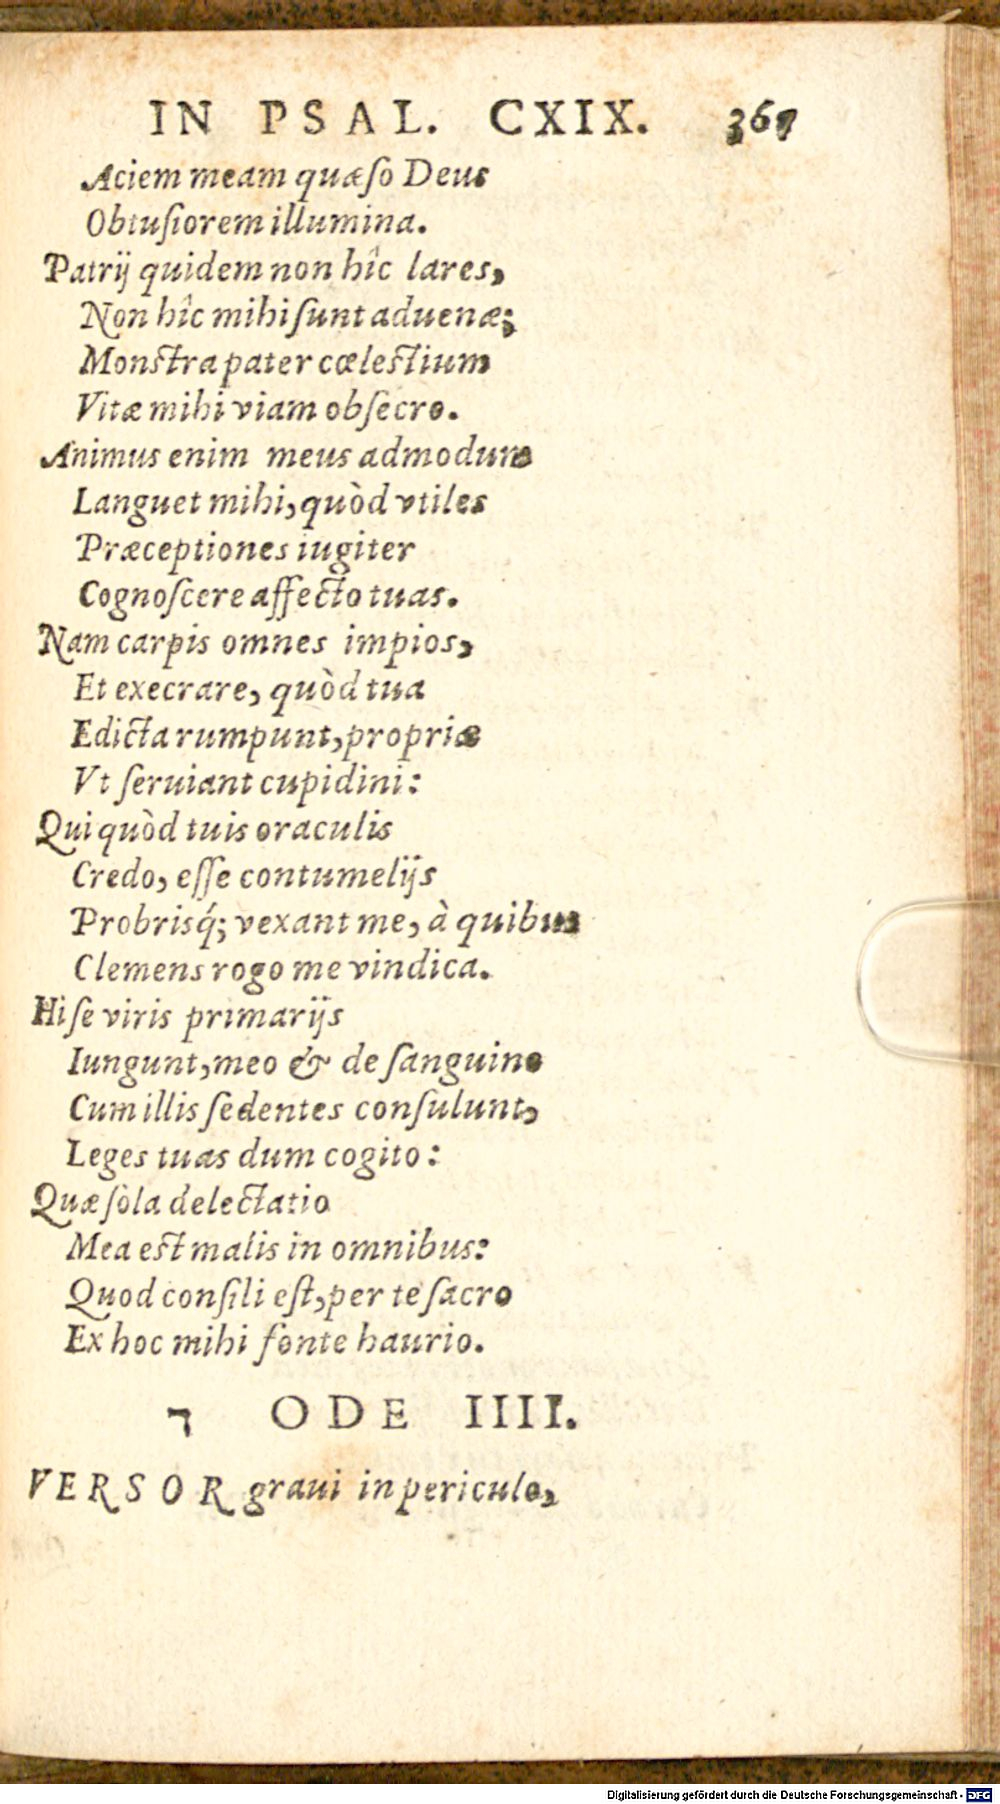 IN PSAL. CXIX. 367
Aciem meam quæſo Deus
Obtuſiorem illumina.
Patrij quidem non hîc lares,
Non hîc mihi ſunt aduenæ;
Monſtra pater cœleſtium
Vitæ mihi viam obſecro.
Animus enim meus admodum
Languet mihi, quòd vtiles
Præceptiones iugiter
Cognoſcere affecto tuas.
Nam carpis omnes impios,
Et execrare, quòd tua
Edicta rumpunt, propriæ
Vt ſeruiant cupidini:
Qui quòd tuis oraculis
Credo, eſſe contumelijs
Probrisq́; vexant me, à quibus
Clemens rogo me vindica.
Hi ſe viris primarijs
Iungunt, meo & de ſanguine
Cum illis ſedentes conſulunt,
Leges tuas dum cogito:
Quæ ſòla delectatio
Mea eſt malis in omnibus:
Quod conſili eſt, per te ſacro
Ex hoc mihi fonte haurio.
ד ODE IIII.
VERSOR graui in periculo,
Digitalisierung gefördert durch die Deutsche Forschungsgemeinschaft - DFG